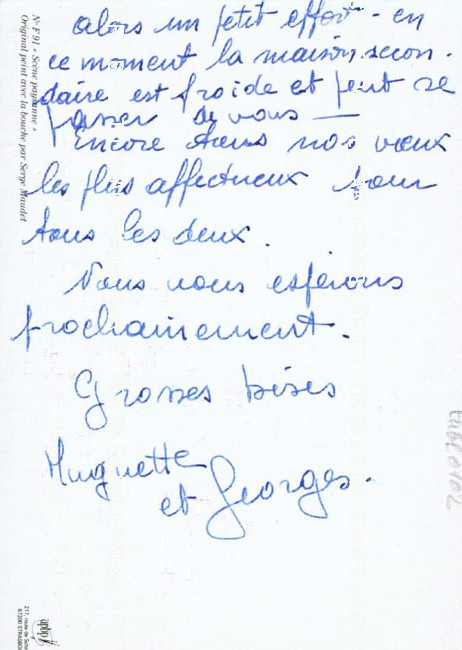 alors un petit effort - en
ce moment la maison secon-
daire est froide et peut se
passer de vous —
Encore tous nos vœux
les plus affectueux pour
tous les deux.
Nous vous espérons
prochainement.
Grosses bises
Huguette
et Georges.
N° F 91 « Scène paysanne »
Original peint avec la bouche par Serge Maudet